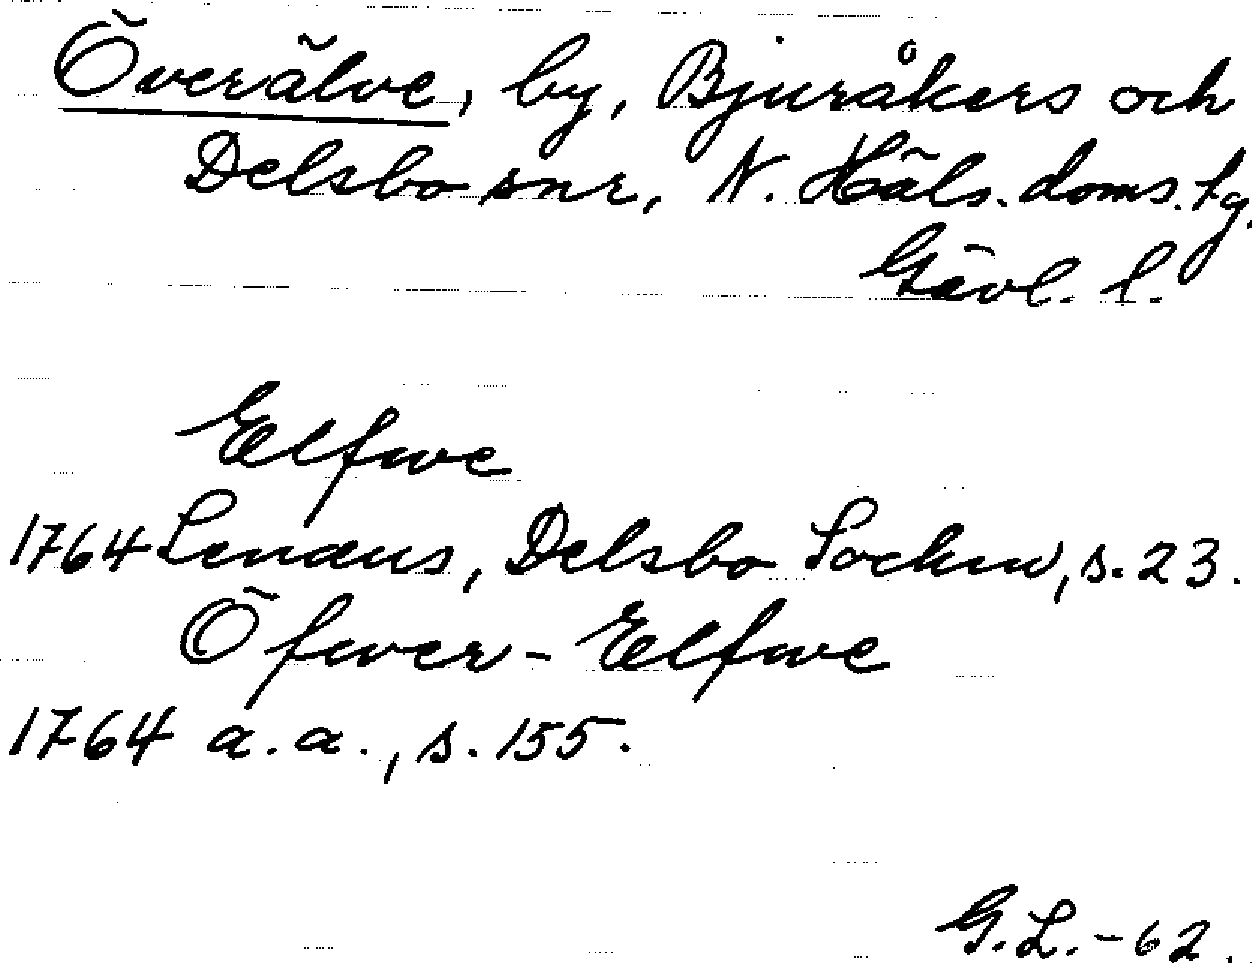 Överälve, by, Bjuråkers och
Delsbo snr, N. Häls. doms. tg.
Gävl. l.
Elfwe
1764 Lenæus, Delsbo Sockn, s. 23.
Öfwer-Elfwe
1764 a.a., s. 155.
G.L.-62.